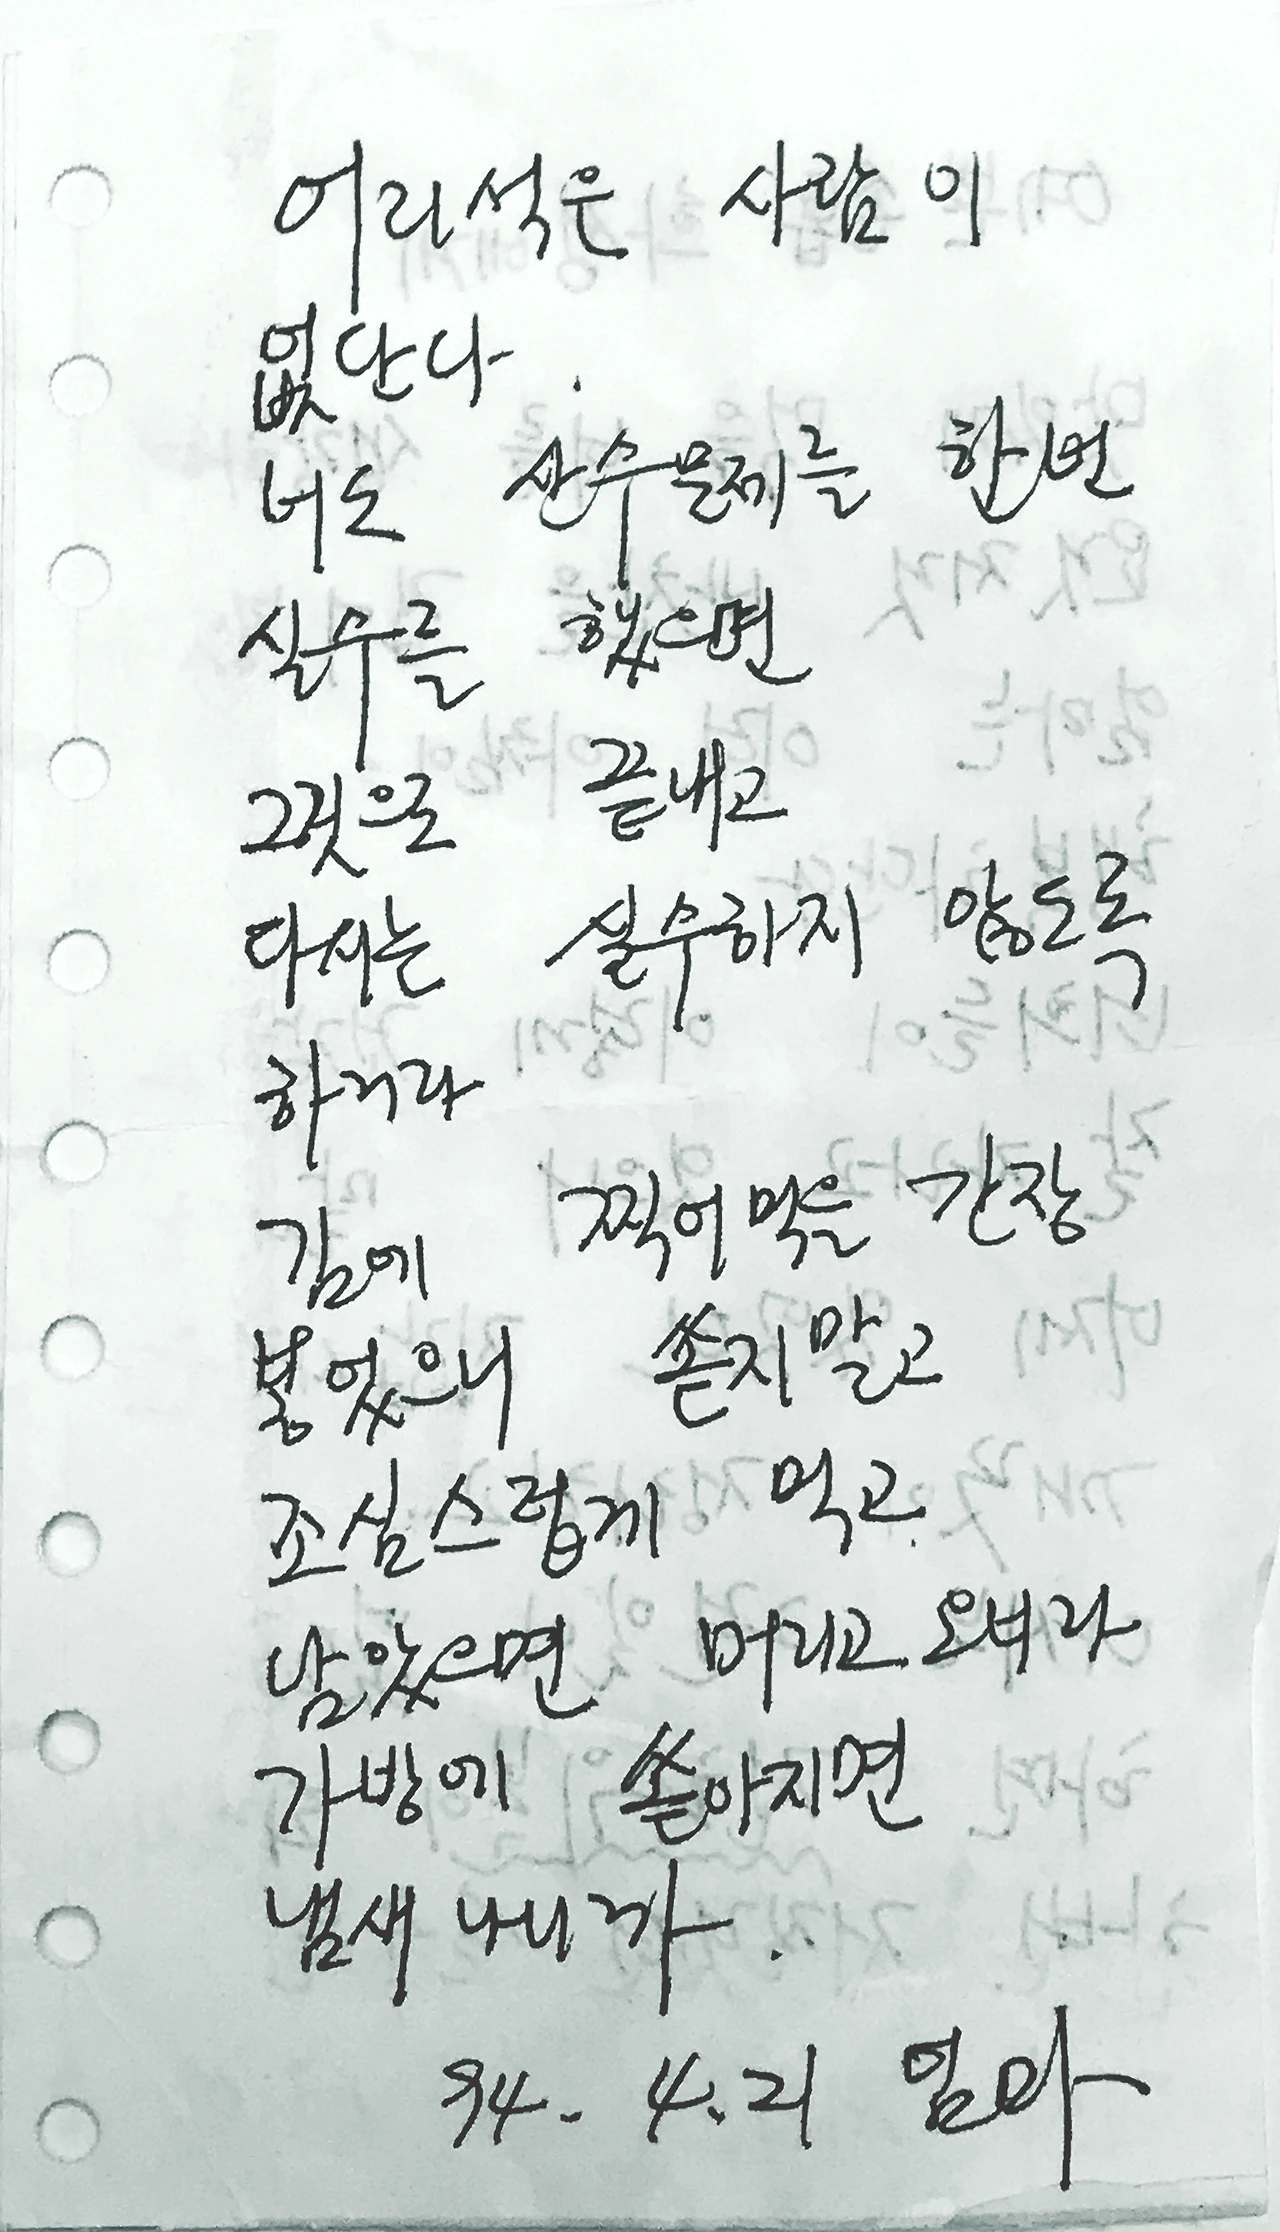 어리석은 사람이
없단다.
너도 산수문제를 한번
실수를 했으면
그것으로 끝내고
다시는 실수하지 않도록
하거라
김에 찍어먹을 간장
넣었으니 쏟지말고
조심스럽게 먹고
남았으면 버리고 오너라
가방에 쏟아지면
냄새나니까.
94. 4. 21 엄마